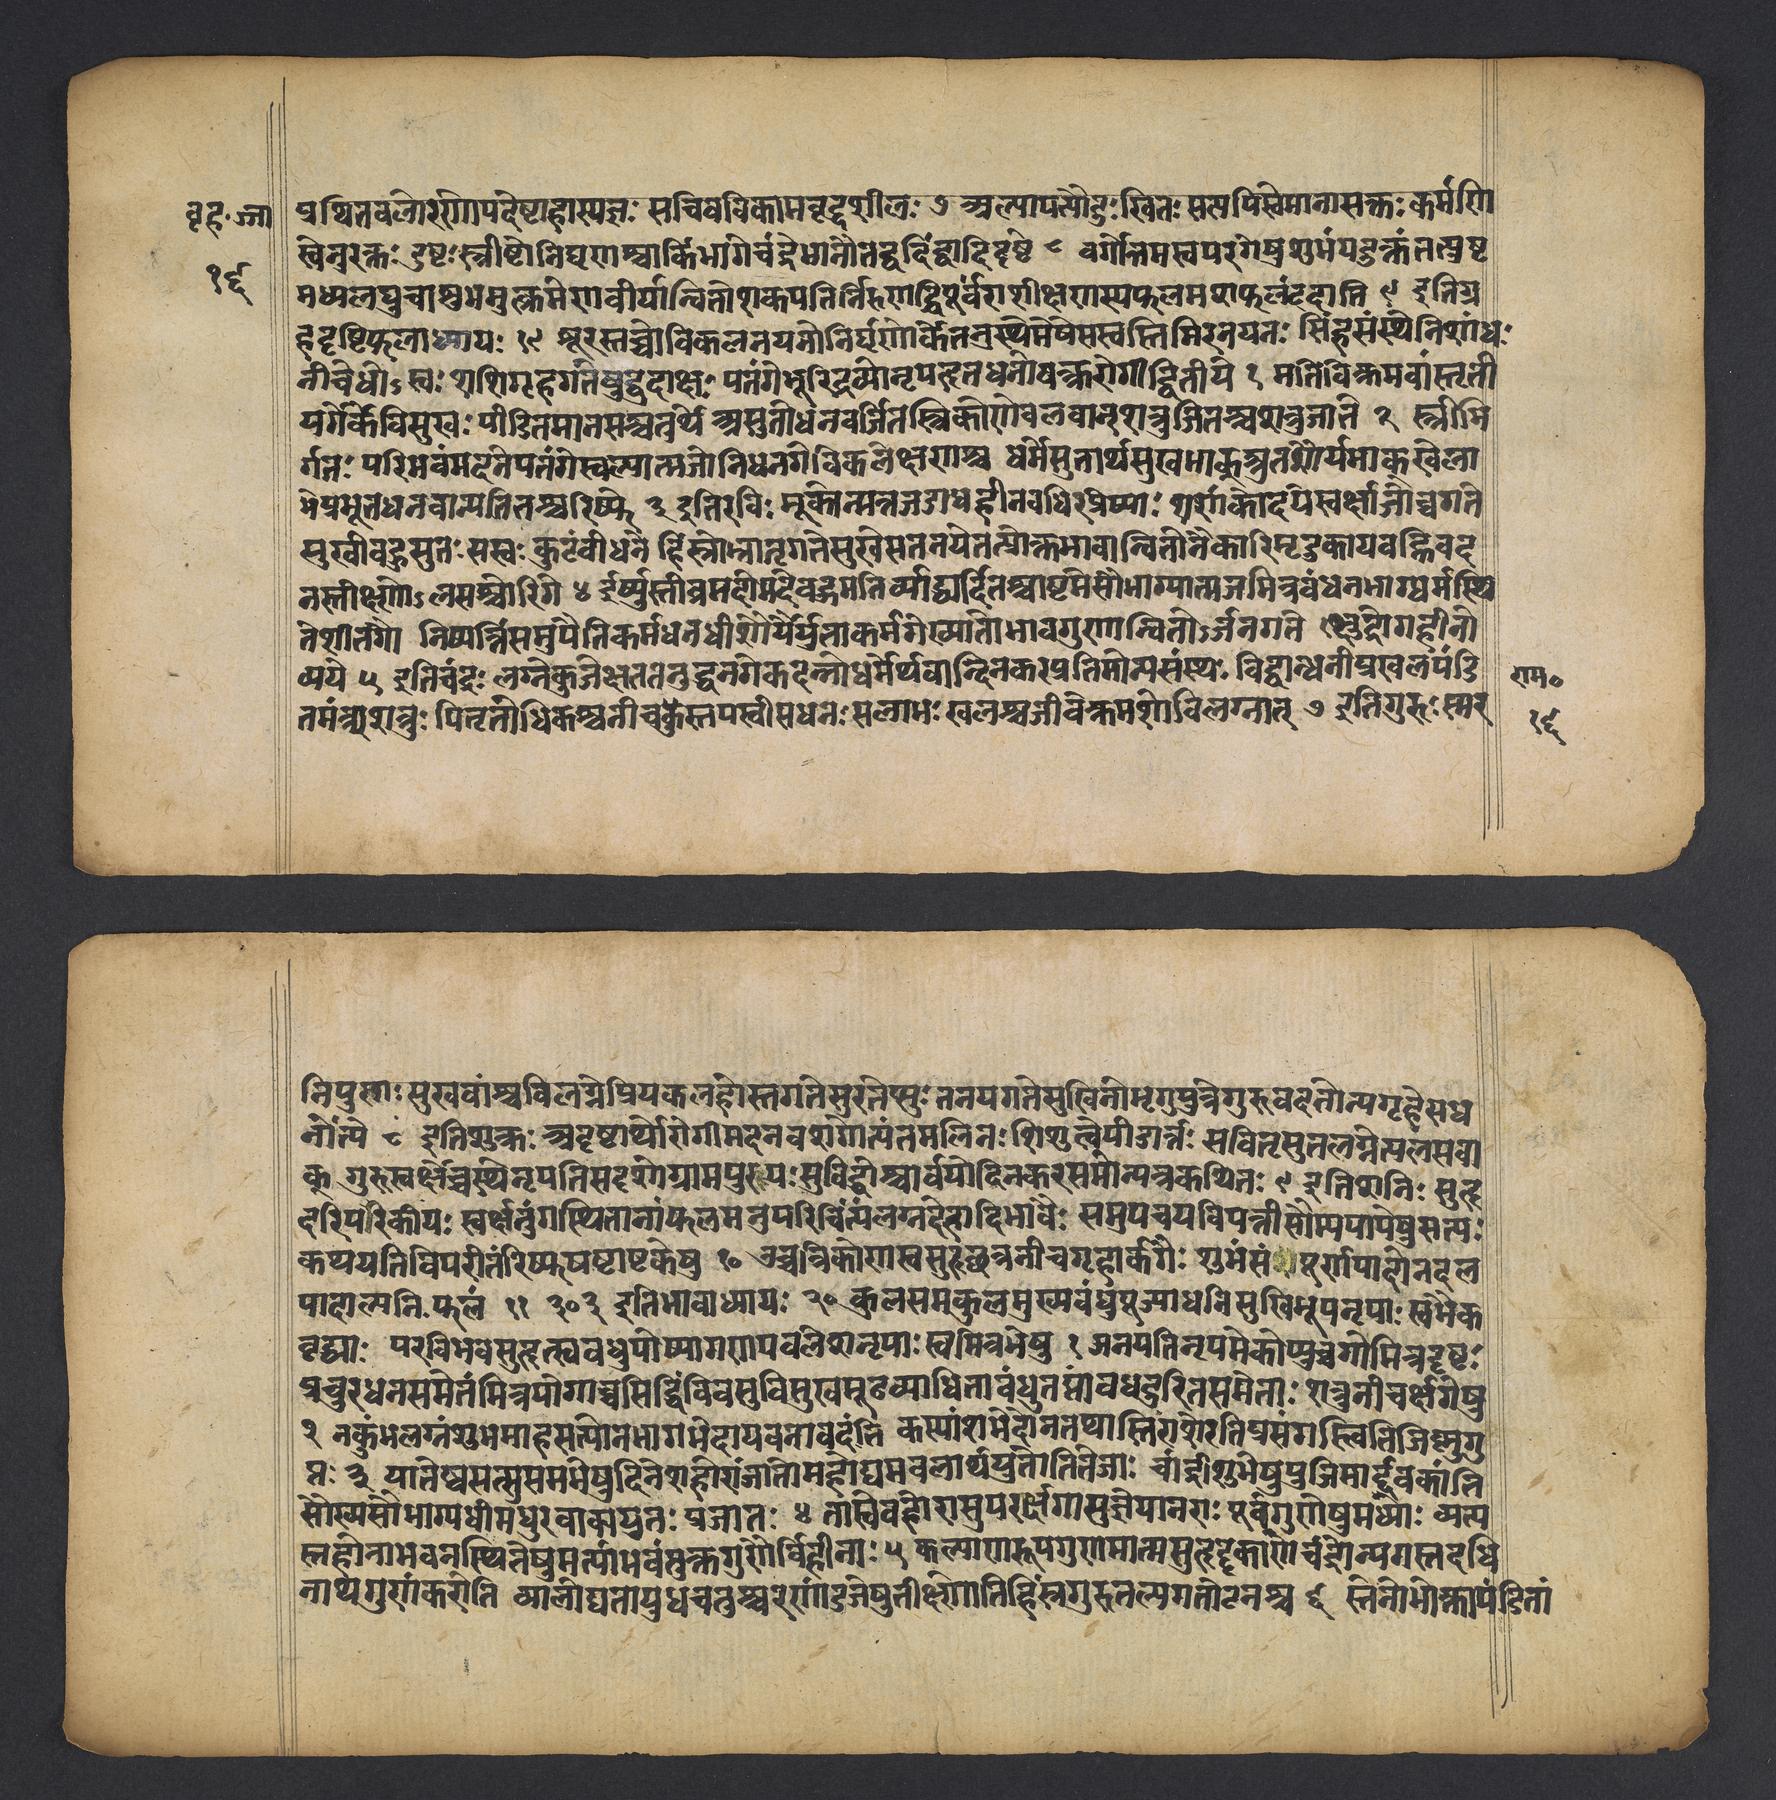 बृह॰ज्जा
१६
प्रथितबलोरणोपदेष्टाहास्यज्ञः सचिवविकामवृद्धशीलः ७ अल्पापत्योदुःखितः सत्यपिस्वेमानासक्तः कर्मणि
स्वेनुरक्तः दुष्टःस्त्रीष्टोनिघृणश्चार्किभागेचंद्रेभानौतद्वदिंद्वादिदृष्टे ८ वर्गोत्तमस्वपरगेषुशुभंयदुक्तंतत्पुष्ट
मध्यलघुताशुभमुत्क्रमेणवीर्यान्वितोशकपतिर्निरुणद्धिपूर्वंराशीक्षणस्यफलमशफलंददाति ९ इतिग्र
हदृष्टिफलाध्यायः १९ शूरस्तब्धोविकलनयनोनिर्घृणोर्केतनुस्थेमेषेसस्वस्तिमिरनयनः सिंहसंस्थेनिशांधः
नीचेंधोऽस्वः शशिगृहगतेबुद्बुदाक्षः पतंगेभूरिद्रव्योनृपहृतधनोवक्त्ररोगीद्वितीये १ मतिविक्रमवांस्तृती
यगेर्केविसुखः पीडितमानसश्चतुर्थे असुतोधनवर्जितस्त्रिकोणेबलवान्शत्रुजितश्चशत्रुजाते २ स्त्रीभि
र्गतः परिभवंमदनेपतंगेस्वल्पात्मजोनिधनगेविकलेक्षणश्च धर्मेसुतार्थसुखभाक्सुश्रुतशौर्यभाक्खेला
भेप्रभूतधनवान्पतितश्चरिष्फे ३ इतिरविः मूकोन्मत्तजडांधहीनबधिरप्रेष्याः शशांकोदयेस्वर्क्षाजोच्चगते
सुखीबहुसुतः सस्वः कुटुंबीधने हिंस्रोभ्रातृगतेसुखेसतनयेतत्प्रोक्तभावान्वितोनैकारिमृदुकायवह्निवद
नस्तीक्ष्णोऽलसश्चारिगे ४ ईर्ष्युस्तीव्रमदोमदेबहुमतिर्व्याद्ध्यर्दितश्चाष्टमेसौभाग्यात्मजमित्रबंधनभाग्धर्मस्थि
तेशीतगौ निष्पत्तिंसमुपैतिकर्मधनधीशौर्यैर्युतःकर्मगेख्यातोभावगुणान्वितोऽर्जनगते क्षुद्रोगहीनो
व्यये ५ इतिचंद्रः लग्नेकुजेक्षततनुर्द्धनगेकदन्नोधर्मेर्थवान्दिनकरप्रतिमोन्यसंस्थः विद्वान्धनीप्रखलपंडि
तमंत्र्यशत्रुः पितृतोधिकश्चनीचकुस्तपस्वीसधनः सलाभः खलश्चजीवेक्रमशोविलग्नात् ७ इतिगुरुः स्मर
राम॰
१६
निपुणः सुखवांश्चविलग्नेप्रियकलहोस्तगतेसुरतेप्सुः तनयगतेसुखितोभृगुपुत्रेगुरुवदतोन्यगृहेसध
नोंत्ये ८ इतिशुक्रः अदृष्टार्थोरोगीमदनवशगोत्यंतमलिनः शिशुत्वेपीडार्त्तः सवितृसुतलग्नेत्यलसवा
क् गुरुस्वर्क्षोच्चस्थेनृपतिसदृशोग्रामपुरपः सुविद्वांश्चार्वंगोदिनकरसमोन्यत्रकथितः ९ इतिशनिः सुहृ
दरिपरकीयः स्वर्क्षतुंगस्थितानांफलमनुपरिचिंत्यंलग्नदेहादिभावैः समुपचयविपत्तीसौम्यपापेषुसत्यः
कथयतिविपरीतंरिष्फषष्टाष्टकेषु १० उच्चत्रिकोणस्वसुहृच्छत्रुनीचगृहार्कगैः शुभंसंपूर्णपादोनदल
पादाल्पनिःफलं ११ २०२ इतिभावाध्यायः २० कुलसमकुलमुख्यबंधुपूज्याधनिसुखिभूपनृपाः स्वभेक
वृद्ध्या परविभवसुहृत्स्वबंधुपोष्यागणपबलेशनृपाः स्वमित्रभेषु १ जनयतिनृपमेकोप्युच्चगोमित्रदृष्टः
प्रचुरधनसमेतंमित्रयोगाच्चसिद्धं विवसुविसुखमूढव्याधिताबंधुतप्तावधदुरितसमेताः शत्रुनीचर्क्षगेषु
२ नकुंभलग्नंशुभमाहसत्योनभागभेदाद्यवनावदंति कस्यांशभेदोनतथास्तिराशेरतिप्रसंगस्त्वितिविष्णुगु
प्तः ३ यातेष्वसत्सुसमभेषुदिनेशहोरांजातोमहोद्यमबलार्थयुतोतितेजाः चांद्रींशुभेषुयुजिमार्द्दवकांति
सौख्यसौभाग्यधीमधुरवाक्ययुतः प्रजातः ४ तास्वेवहोरासुपरर्क्षगासुज्ञेयानराः पूर्वगुणेषुमध्याः व्यत्य
स्तहोराभवनस्थितेषुमर्त्याभवंत्युक्तगुणैर्विहीनाः ५ कल्याणरूपगुणमात्मसुहृद्दृकाणेचंद्रोन्यगस्तदधि
नाथगुणंकरोति व्यालोद्यतायुधचतुश्चरणांडजेषुतीक्ष्णोतिहिंस्रगुरुतल्पगतोटनश्च ६ स्तेनोभोक्तापंडितो